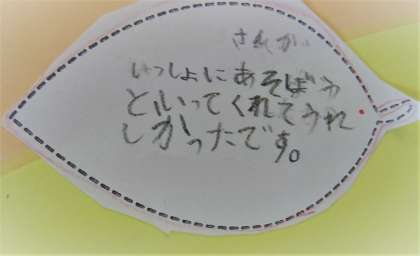 いっしょにあそぼう
といってくれてうれ
しかったです。